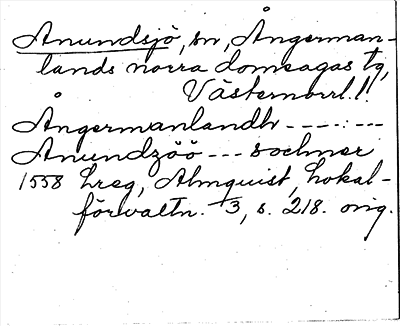 Anundsjö, sn, Ångerman-
lands norra domsagas tg,
Västernorrl. l.
Ångermanlandh - - - . - - -
Anundzöö - - - sochner
1558 hreg, Almquist, Lokal-
förvaltn. 3, s. 218. orig.